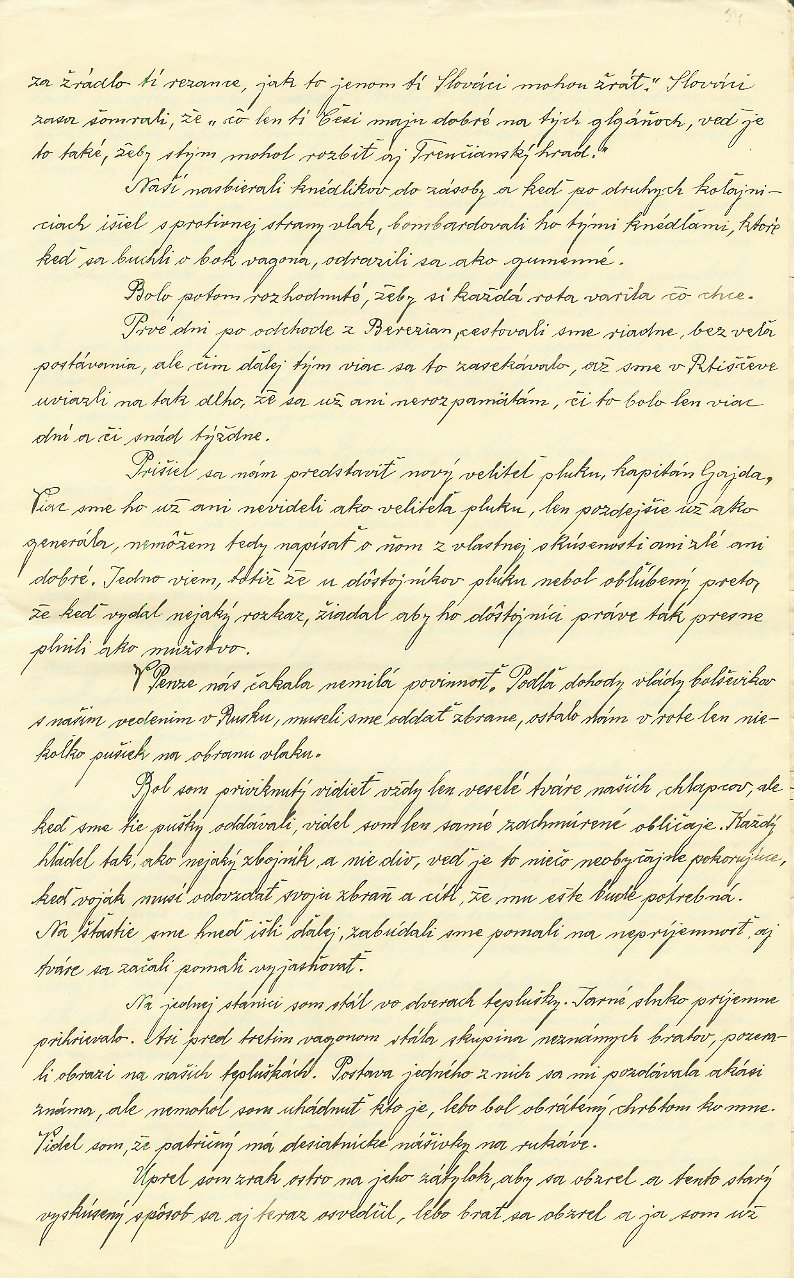 54
za žrádlo tí rezance, jak to jenom tí Slováci mohou žrát." Slováci
zasa šomrali, že „čo len tí Česi majú dobré na tých glgáňoch, veď je
to také, žeby s tým mohol rozbiť aj Trenčianský hrad."
Naší nasbierali knédlikov do zásoby a keď po druhych koľajni-
ciach išiel s protivnej strany vlak, bombardovali ho tými knédlami, ktoré
keď sa buchli o bok vagona, odrazili sa ako gumenné.
Bolo potom rozhodnuté, žeby si každá rota varila čo chce.
Prvé dni po odchode z Berezian, cestovali sme riadne, bez veľa
postávania, ale čim ďalej tým viac sa to zasekávalo, až sme v Rtiščeve
uviazli na tak dlho, že sa už ani nerozpamätám, či to bolo len viac
dní a či snád týždne.
Prišiel sa nám predstaviť nový veliteľ pluku, kapitán Gajda.
Viac sme ho už ani nevideli ako veliteľa pluku, len pozdejšie už ako
generála, nemôžem tedy napísať o ňom z vlastnej skúsenosti ani zlé ani
dobré. Jedno viem, totiž že u dôstojníkov pluku nebol obľúbený preto,
že keď vydal nejaký rozkaz, žiadal aby ho dôstojníci práve tak presne
plnili ako mužstvo.
V Penze nás čakala nemilá povinnosť. Podľa dohody vlády bolševikov
s našim vedenim v Rusku, museli sme oddať zbrane, ostalo nám v rote len nie-
koľko pušiek na obranu vlaku.
Bol som priviknutý vidieť vždy len veselé tváre našich chlapcov, ale
keď sme tie pušky oddávali, videl som len samé zachmúrené obličaje. Každý
hľadel tak, ako nejaký zbojník a nie div, veď je to niečo neobyčajne pokorujúce,
keď voják musí odovzdať svoju zbraň a cíti, že mu ešte bude potrebná.
Na šťastie sme hneď išli ďalej, zabúdali sme pomali na neprijemnosť, aj
tváre sa začali pomali vyjasňovať.
Na jednej stanici som stál vo dverach teplušky. Jarné slnko príjemne
prihrievalo. Asi pred tretim vagonom stála skupina neznámych bratov, pozera-
li obrazi na našich tepluškách. Postava jedného z nich sa mi pozdávala akási
známa, ale nemohol som uhádnuť kto je, lebo bol obrátený chrbtom ko mne.
Videl som, že patričný má desiatnicke nášivky na rukáve.
Uprel som zrak ostro na jeho zátylok, aby sa obzrel a tento starý
vyskúsený spôsob sa aj teraz osvedčil, lebo brat sa obzrel a ja som už